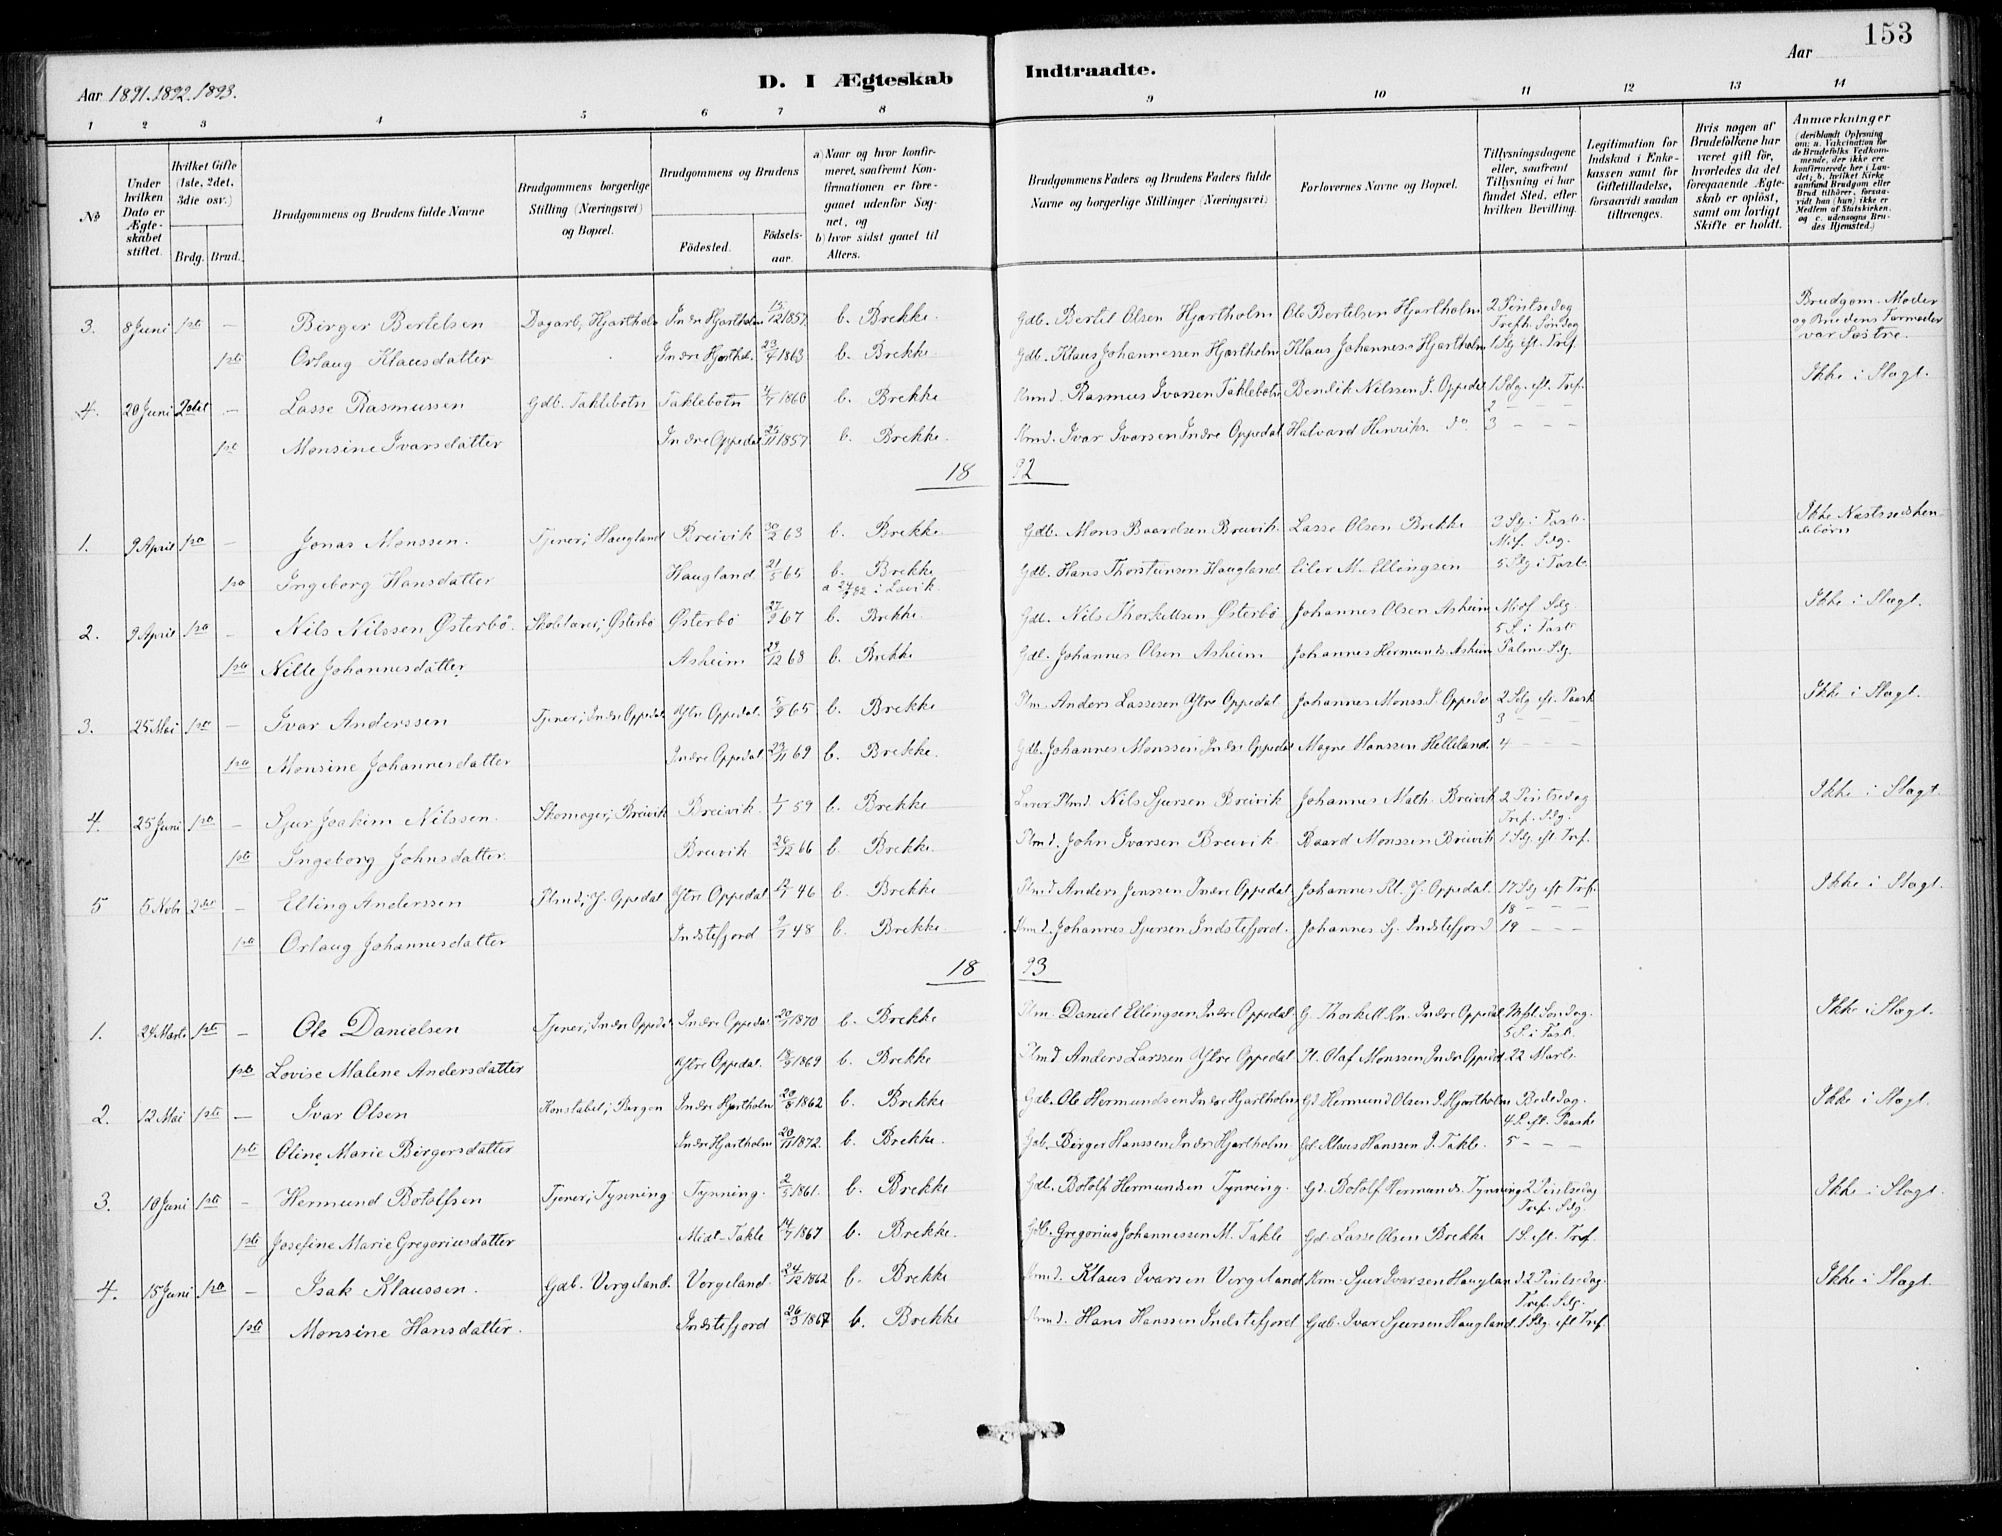 153
Aar 1891. 1892. 1893.
D. I Ægteskab Indtraadte.
Aar
1 2 3 4 5 6 7 8 9 10 11 12 13 14
No
Under hvilken Dato er Ægteskabet stiftet.
Hvilket Gifte (1ste, 2det, 3die osv.)
Brdg. Brud.
Brudgommens og Brudens fulde Navne
Brudgommens borgerlige Stilling (Næringsvei) og Bopæl.
Brudgommens og Brudens
Födested. Födselsaar.
a) Naar og hvor konfirmeret, saafremt Konfirmationen er foregaaet udenfor Sognet, og
b) hvor sidst gaaet til Alters.
Brudgommens Faders og Brudens Faders fulde Navne og borgerlige Stillinger (Næringsvei)
Forlovernes Navne og Bopæl.
Tillysningsdagene eller, saafremt Tillysning ei har fundet Sted, efter hvilken Bevilling.
Legitimation for Indskud i Enkekassen samt for Giftetilladelse, forsaavidt saadan tiltrænges.
Hvis nogen af Brudefolkene har været gift för, hvorledes da det foregaaende Ægteskab er oplöst, samt om lovligt Skifte er holdt.
Anmærkninger
(deriblandt Oplysning om: a. Vakcination for de Brudefolks Vedkommende, der ikke ere konfirmerede her i Landet; b. hvilket Kirkesamfund Brudgom eller Brud tilhörer, forsaavidt han (hun) ikke er Medlem af Statskirken, og c. udensogns Brudes Hjemsted.)
3. 8 Juni 1ste – Birger Bertelsen Dagarb, Hjartholm Indre Hjartholm 15/12 1857 b. Brekke Gdb. Bertil Olsen Hjartholm Ole Bertelsen Hjartholm 2 Pintsedag Trefh. Söndag Brudgom. Moder og Brudens Farmoder var Söstre.
1ste Orlaug Klausdatter Indre Hjarthol. 23/4 1863 b. Brekke Gdb. Klaus Johannessen Hjartholm Klaus Johannes. Hjartholm 1 Sdg eft. Tref.
4. 20 Juni 2det – Lasse Rasmussen Gdb. Taklebotn Taklebotn 4/7 1860 b. Brekke Krmd. Rasmus Ivarsen Taklebotn Bendik Nilssen I. Oppedal 1 Sdg. eft. Tref. Ikke i Slægt.
2 – – –
1ste Monsine Ivarsdatter Indre Oppedal 25/11 1857 b. Brekke Krmd. Ivar Ivarsen Indre Oppedal Halvard Henriks. do. 3 – – –
18 92
1. 9 April 1ste – Jonas Monssen. Tjener, Haugland Breivik 20/2 63 b. Brekke Gdb. Mons Baardsen Breivik Lasse Olsen Brekke 3 Sdg i Faste Mif. Sdg. Ikke Næstsödskendebörn
1ste Ingeborg Hansdatter Haugland 21/5 65 b. Brekke Gdb. Hans Thorsteinsen Haugland Eiler M. Ellingsen 5 Sdg i Faste
2. 9 April 1ste – Nils Nilssen Østerbö. Skolelærer, Østerbö Østerbö 27/9 67 b. Brekke Gdb. Nils Thorkellsen Østerbö Johannes Olsen Asheim Midf. Sdg 5 S. i Faste Ikke i Slægt.
1ste Nille Johannesdatter Asheim 29/12 68 b. Brekke Gdb. Johannes Olsen Asheim Johannes Hermunds. Asheim Palme Sdg.
3. 25 Mai 1ste – Ivar Anderssen Tjener, Indre Oppedal Ytre Oppedal. 5/9 65 b. Brekke Plm. Anders Lassesen Ytre Oppedal Johannes Monss. I. Oppedal 2 Sdg eft. Paaske Ikke i Slægt.
3 – –
1ste Monsine Johannesdatter Indre Oppedal 23/11 69 b. Brekke. Gdb. Johannes Monssen Indre Oppedal Magne Hanssen Helleland. 4 – – –
4. 25 Juni 1ste – Sjur Joakim Nilssen. Skomager, Breivik Breivik. 1/1 59 b. Brekke Plmd. Nils Sjursen Breivik Johannes Math. Breivik 2 Pintsedag Tref. Sdg. Ikke i Slægt.
1ste Ingeborg Johnsdatter. Breivik 26/12 66 b. Brekke Plmd. John Ivarsen Breivik Baard Monssen Breivik 1 Sdg eft Tref.
5 5 Nobr 2det – Elling Anderssen Plmd, Y. Oppedal Ytre Oppedal 46 b. Brekke Plmd. Anders Jenssen Indre Oppedal Johannes Kl. Y. Oppedal 17 Sdg eft Tref. Ikke i Slægt.
18 – – –
1ste Orlaug Johannesdatter Indstefjord 48 b. Brekke Krmd. Johannes Sjursen Indstefjord. Johannes Sj. Indstefjord 19 – – –
18 93
1. 24 Marts 1ste – Ole Danielsen Tjener, Indre Oppedal Indre Oppedal 20/1 1870 b. Brekke Plm. Daniel Ellingsen Indre Oppedal G. Thorkell Kn. Indre Oppedal Mdf. Söndag. 5 S. i Faste Ikke i Slægt.
1ste Lovise Malene Andersdatter Ytre Oppedal. 1869 b. Brekke Plmd Anders Larssen Ytre Oppedal Pl. Olaf Monssen Indre Oppedal 22 Marts
2. 12 Mai 1ste – Ivar Olsen Konstabel, Bergen Indre Hjartholm 20/8 1862 b. Brekke Gdb. Ole Hermundsen Indre Hjartholm Gd. Hermund Olsen I. Hjartholm Bededag. 4 S. eft. Paaske Ikke i Slægt.
1ste Oline Marie Birgersdatter Indre Hjartholm 20/11 1872. b. Brekke. Gdb. Birger Hanssen Indre Hjartholm Gd. Klaus Hanssen I. Takle. 5 – – –
3. 10 Juni 1ste – Hermund Botolfsen Tjener, Tynning Tynning. 2/5 1861. b. Brekke Gdb. Botolf Hermundsen Tynning. Gd. Botolf Hermunds. Tynning 2 Pintsedag Tref. Sdg. Ikke i Slægt.
1ste Josefine Marie Gregoriusdatter Midt-Takle 14/7 1867 b. Brekke. Gdb. Gregorius Johannessen M. Takle Gd. Lasse Olsen Brekke 1 S. eft. Tref.
4. 15 Juni 1ste – Isak Klaussen. Gdb. Vergeland. Vergeland. 24/12 1862 b. Brekke Krmd. Klaus Ivarsen Vergeland Krm. Sjur Ivarsen Haugland 2 Pintsedag. Tref. Sdg. Ikke i Slægt.
1ste Monsine Hansdatter. Indstefjord 26/3 1867 b. Brekke Krmd. Hans Hanssen Indstefjord Gdb. Ivar Sjursen Haugland. 1 Sdg. eft Tref.